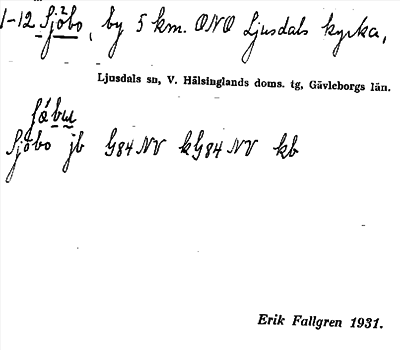 1-12 Sjöbo, by 5 km. ONO Ljusdals kyrka,
Ljusdals sn, V. Hälsinglands doms. tg, Gävleborgs län.
Sjöbo jb G84 NV k G84 NV kb
Erik Fallgren 1931.